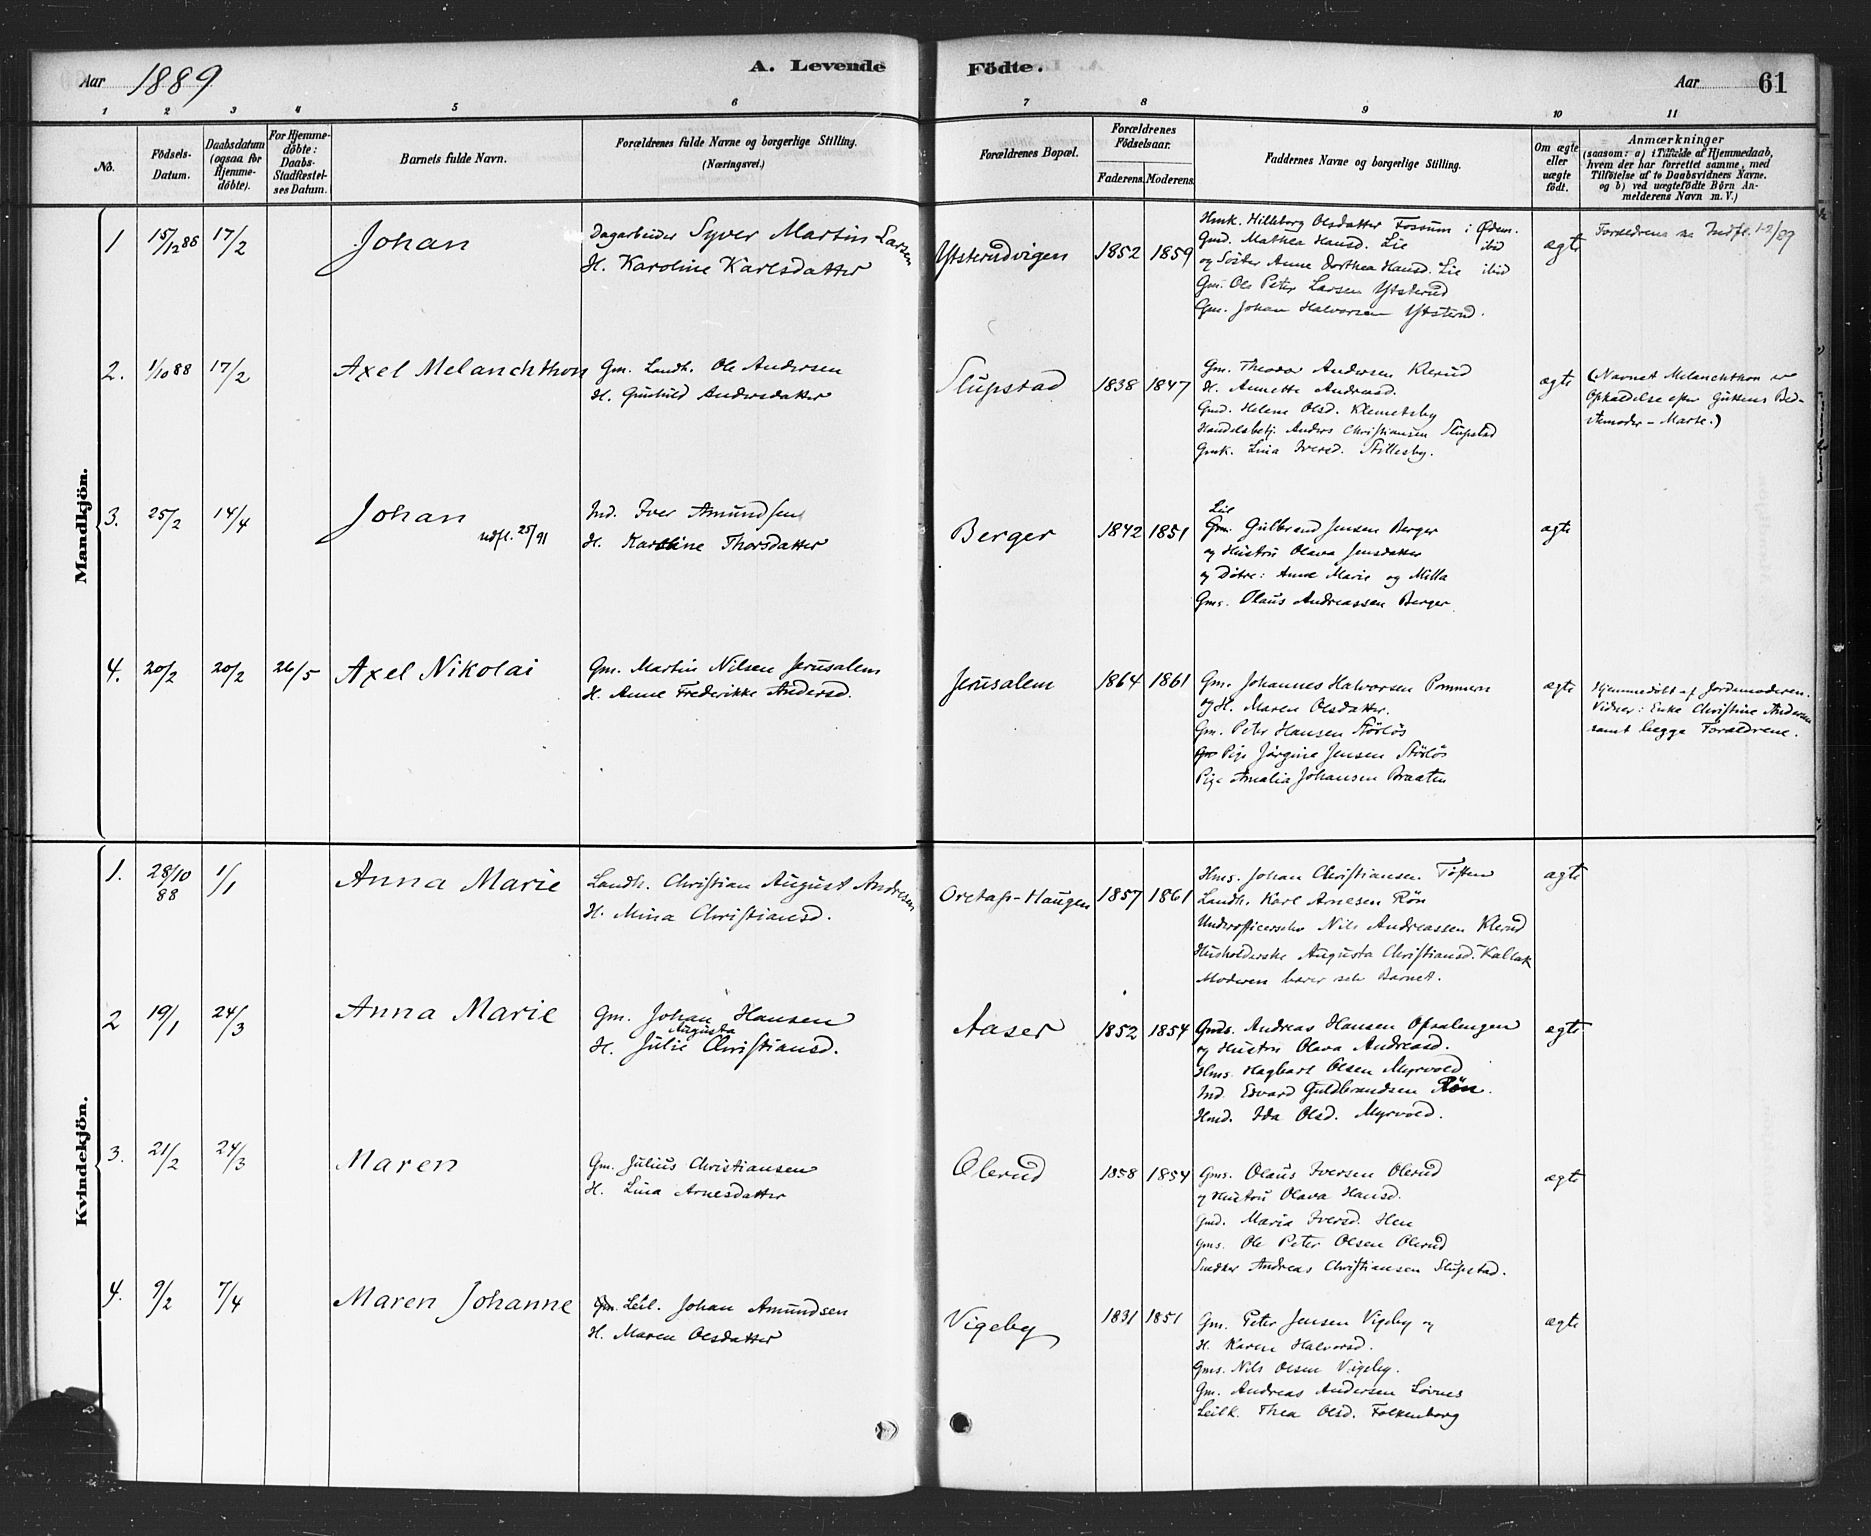 Aar 1889 A. Levende Födte. Aar 61
1 2 3 4 5 6 7 8 9 10 11
No. Födsels-Datum. Daabsdatum (ogsaa for Hjemmedöbte). For Hjemmedöbte: Daabs-Stadfestelses Datum. Barnets fulde Navn. Forældrenes fulde Navne og borgerlige Stilling. (Næringsvei.) Forældrenes Bopæl. Forældrenes Födselsaar. Faderens. Moderens. Faddernes Navne og borgerlige Stilling. Om ægte eller uægte födt. Anmærkninger (saasom: a) i Tilfælde af Hjemmedaab, hvem der har forrettet samme, med Tilföielse af to Daabsvidners Navne. og b) ved uægtefödte Börn Anmelderens Navn m. V.)
Mandkjön.
1 15/12 88 17/2 Johan
Dagarbeider Syver Martin Larsen
H. Karoline Karlsdatter
Ytsterudvigen 1852 1859
Hmk. Hilleborg Olsdatter Fossum i Ødem.
Gmd. Mathea Hansd. Lie ibid
og Söster Anne Dorthea Hansd. Lie ibid
Gm. Ole Peter Larsen Ytsterud
Gm. Johan Halvorsen Ytsterud.
ægte
Forældrene Indfl. 1-2/89
2. 1/10 88 17/2 Axel Melanchthon
Gm. Landh. Ole Andersen
H. Gunhild Andersdatter
Slupstad 1838 1847
Gm. Theodor Andersen Klerud
H. Annette Andreasd.
Gmd. Helene Olsd. Klemetsby
Handelsbetj. Anders Christiansen Slupstad
Gmk. Lina Iversd. Stillesby.
ægte
(Navnet Melanchthon er
Opkaldelse efter Guttens Bed-
stemoder – Marte.)
3. 25/2 14/4 Johan
udfl. 25/91
Ind. Iver Amundsen
H. Karoline Thorsdatter
Berger 1842 1851
Leil
Gm. Gulbrand Jensen Berger
og Hustru Olava Jensdatter
og Dötre: Anne Marie og Milla
Gms. Olaus Andreassen Berger
ægte
4. 20/2 20/2 26/5 Axel Nikolai
Gm. Martin Nilsen Jerusalem
H. Anne Frederikke Andersd.
Jerusalem 1864 1861
Gm. Johannes Halvorsen Pommern
og H. Maren Olsdatter.
Gm. Peter Hansen Störlös
Pige Jörgine Jensen Störlös
Pige Amalia Johansen Braaten
ægte
Hjemmedöbt af Jordemoderen.
Vidner: Enke Christine Andersen
samt begge Forældrene.
Kvindekjön.
1. 28/10 88 1/1 Anna Marie
Landh. Christian August Andresen
H. Mina Christiansd.
Oretap-Haugen 1857 1861
Hms. Johan Christiansen Toften
Landh. Karl Arnesen Rön
Underofficerselev Nils Andreassen Klerud
Husholderske Augusta Christiansd. Kallak
Moderen bærer selv Barnet.
ægte
2 19/1 24/3 Anna Marie
Gm. Johan Hansen
Augusta
H. Julie Christiansd.
Aaser 1852 1854
Gms. Andreas Hansen Opsalengen
og Hustru Olava Andreasd.
Hms. Hagbart Olsen Myrvold
Ind. Edvard Guldbrandsen Rön.
Hmd. Ida Olsd. Myrvold.
ægte
3. 21/2 24/3 Maren
Gm. Julius Christiansen
H. Lina Arnesdatter
Olerud 1858 1854
Gms. Olaus Iversen Olerud
og Hustru Olava Hansd.
Gmd. Maria Iversd. Hen
Gms. Ole Peter Olsen Olerud
Snedker Andreas Christiansen Slupstad.
ægte
4. 9/2 7/4 Maren Johanne
Gm. Leil. Johan Amundsen
H. Maren Olsdatter
Vigeby 1831 1851
Gm. Peter Jensen Vigeby og
H. Karen Halvorsd.
Gms. Nils Olsen Vigeby.
Gm. Andreas Andersen Lövnes
Leilk. Thea Olsd. Falkenborg
ægte